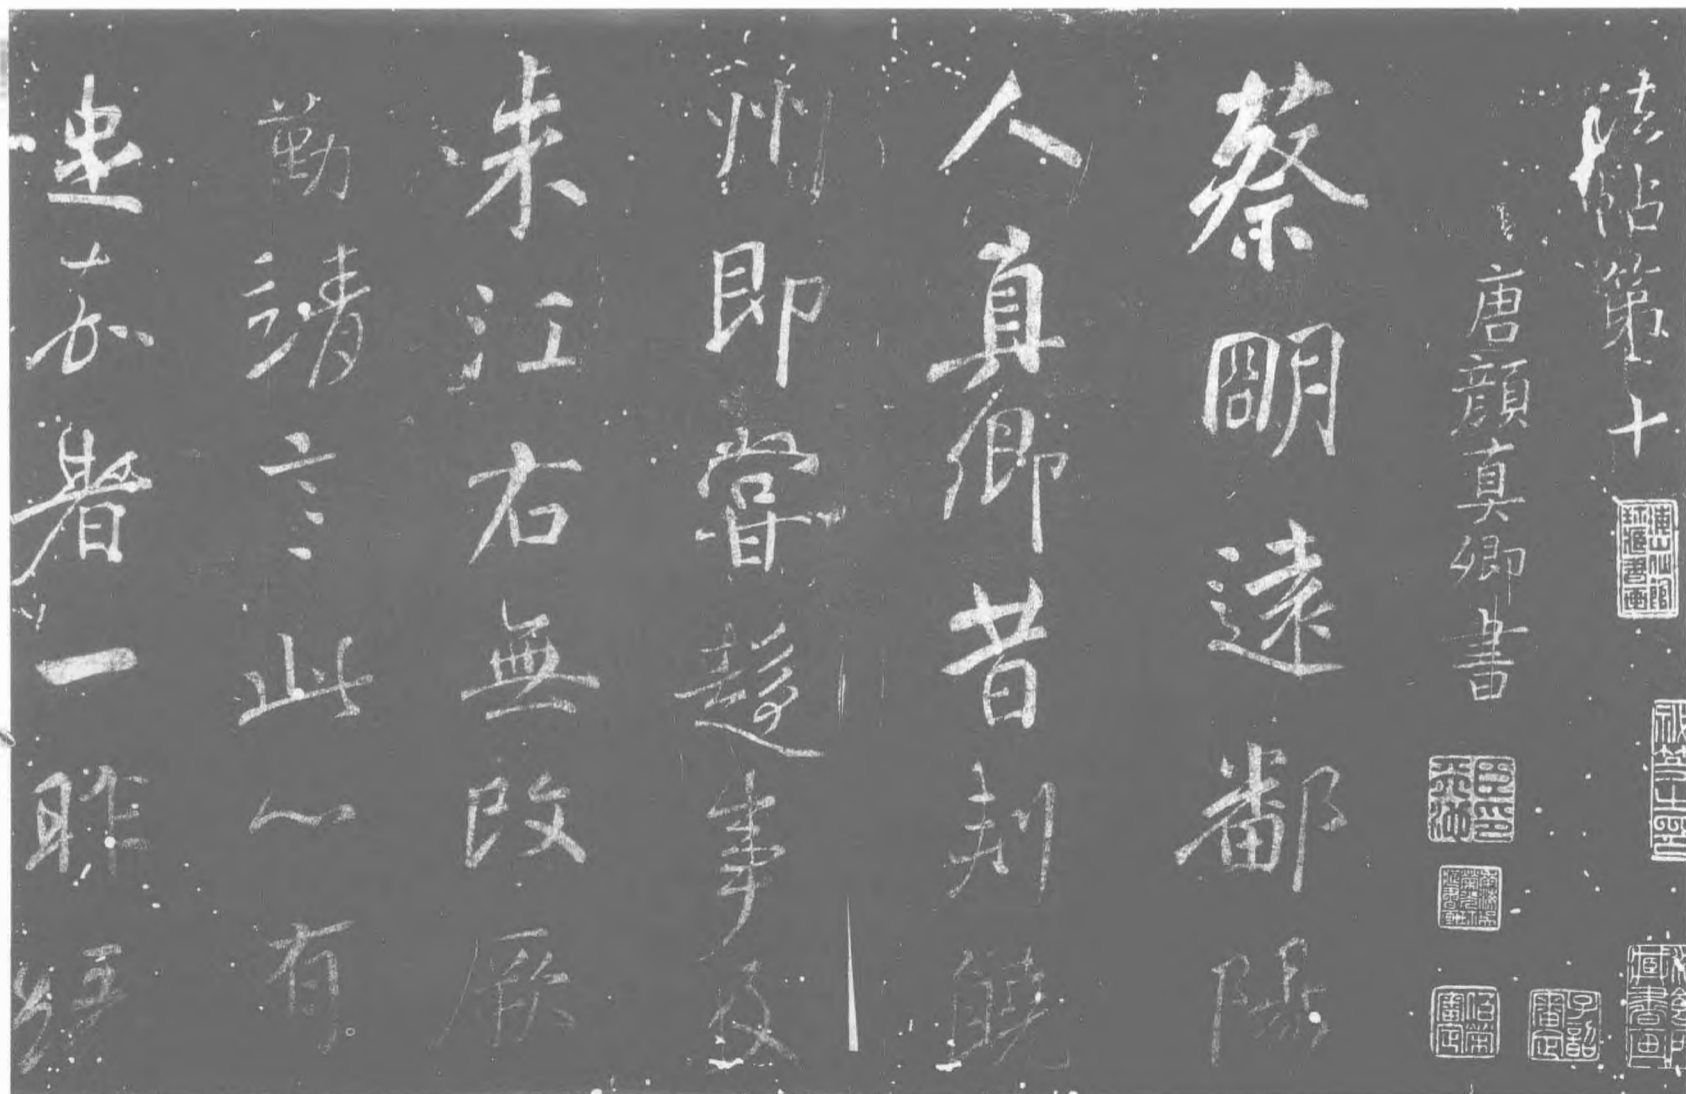 法帖第十
唐顏真卿書
蔡明遠鄱陽
人真卿昔刺饒
州即嘗趨事及
来江右無改厥
勤靖言此心有
足嘉者一昨緣